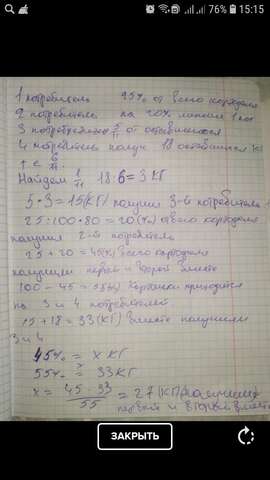 76% 15:15
1 потребитель 25% от всего картофеля
2 потребитель на 20% меньше 1 пот
3 потребитель 5/11 от оставшегося
4 потребитель получ 18 оставшихся
Найдем 1/11 18:6=3 КГ
5·3=15(КГ) получил 3-й потребитель
25:100·80=20(%) от всего картофеля
получил 2-й потребитель
25+20=45(%) всего картофеля
получили первый и второй вместе
100-45=55(%) картофеля приходится
на 3 и 4 потребителей
15+18=33(КГ) вместе получили
3 и 4
45% = x КГ
55% = 33КГ
x = 45·33/55 = 27(КГ) получили
первый и второй вместе
ЗАКРЫТЬ